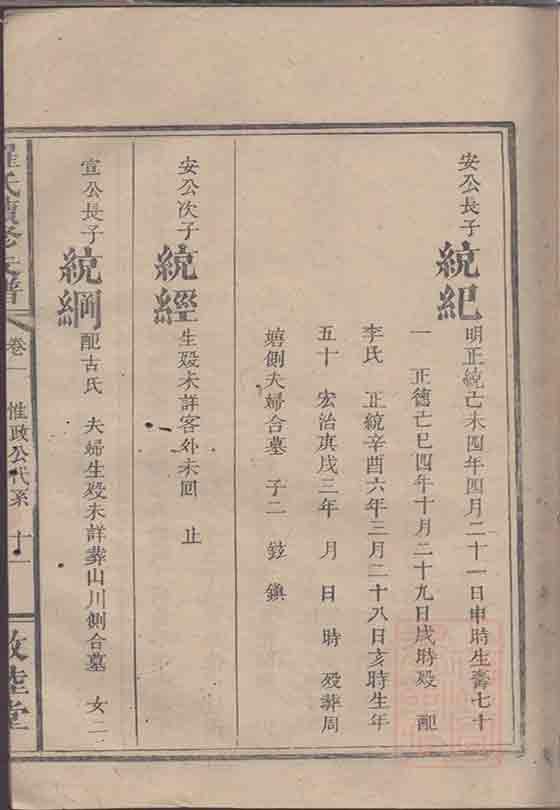 安公長子
統紀
明正統己未四年四月二十一日申時生壽七十
一 正德己巳四年十月二十九日戌時殁 配
李氏 正統辛酉六年三月二十八日亥時生年
五十 宏治庚戌三年 月 日 時 殁葬周
側夫婦合墓 子二 鎡 鎮
安公次子
統經
生殁未詳客外未回 止
宣公長子
統綱
配古氏 夫婦生殁未詳葬山川側合墓 女二
羅氏續修族譜
卷一 惟政公代系 十一
敦睦堂